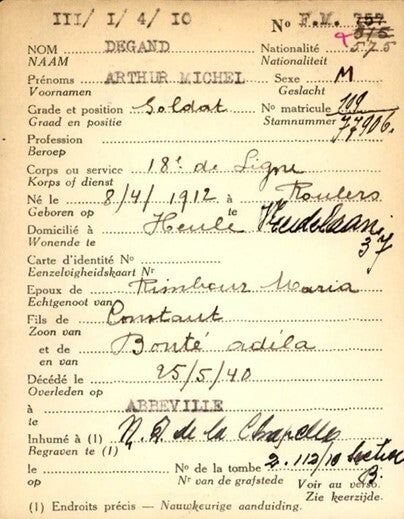 III/ I/4/ I0 No F.M. 757
515
NOM DEGAND Nationalité 575
NAAM Nationaliteit
Prénoms ARTHUR MICHEL Sexe M
Voornamen Geslacht
Grade et position Soldat No matricule 109
Graad en positie Stamnummer 77906.
Profession
Beroep
Corps ou service 18e de Ligne
Korps of dienst
Né le 8/4/1912 à Roulers
Geboren op te
Domicilié à Heule
Wonende te 37
Carte d'identité No
Eenzelvigheidskaart Nr
Epoux de Maria
Echtgenoot van
Fils de Constant
Zoon van
et de Bonté adéla
en van
Décédé le 25/5/40
Overleden op
à ABBEVILLE
te
Inhumé à (1) N. D. de la Chapelle
Begraven te (1)
le No de la tombe 2.112/10 Section
op Nr van de grafstede B.
Voir au verso.
Zie keerzijde.
(1) Endroits précis — Nauwkeurige aanduiding.